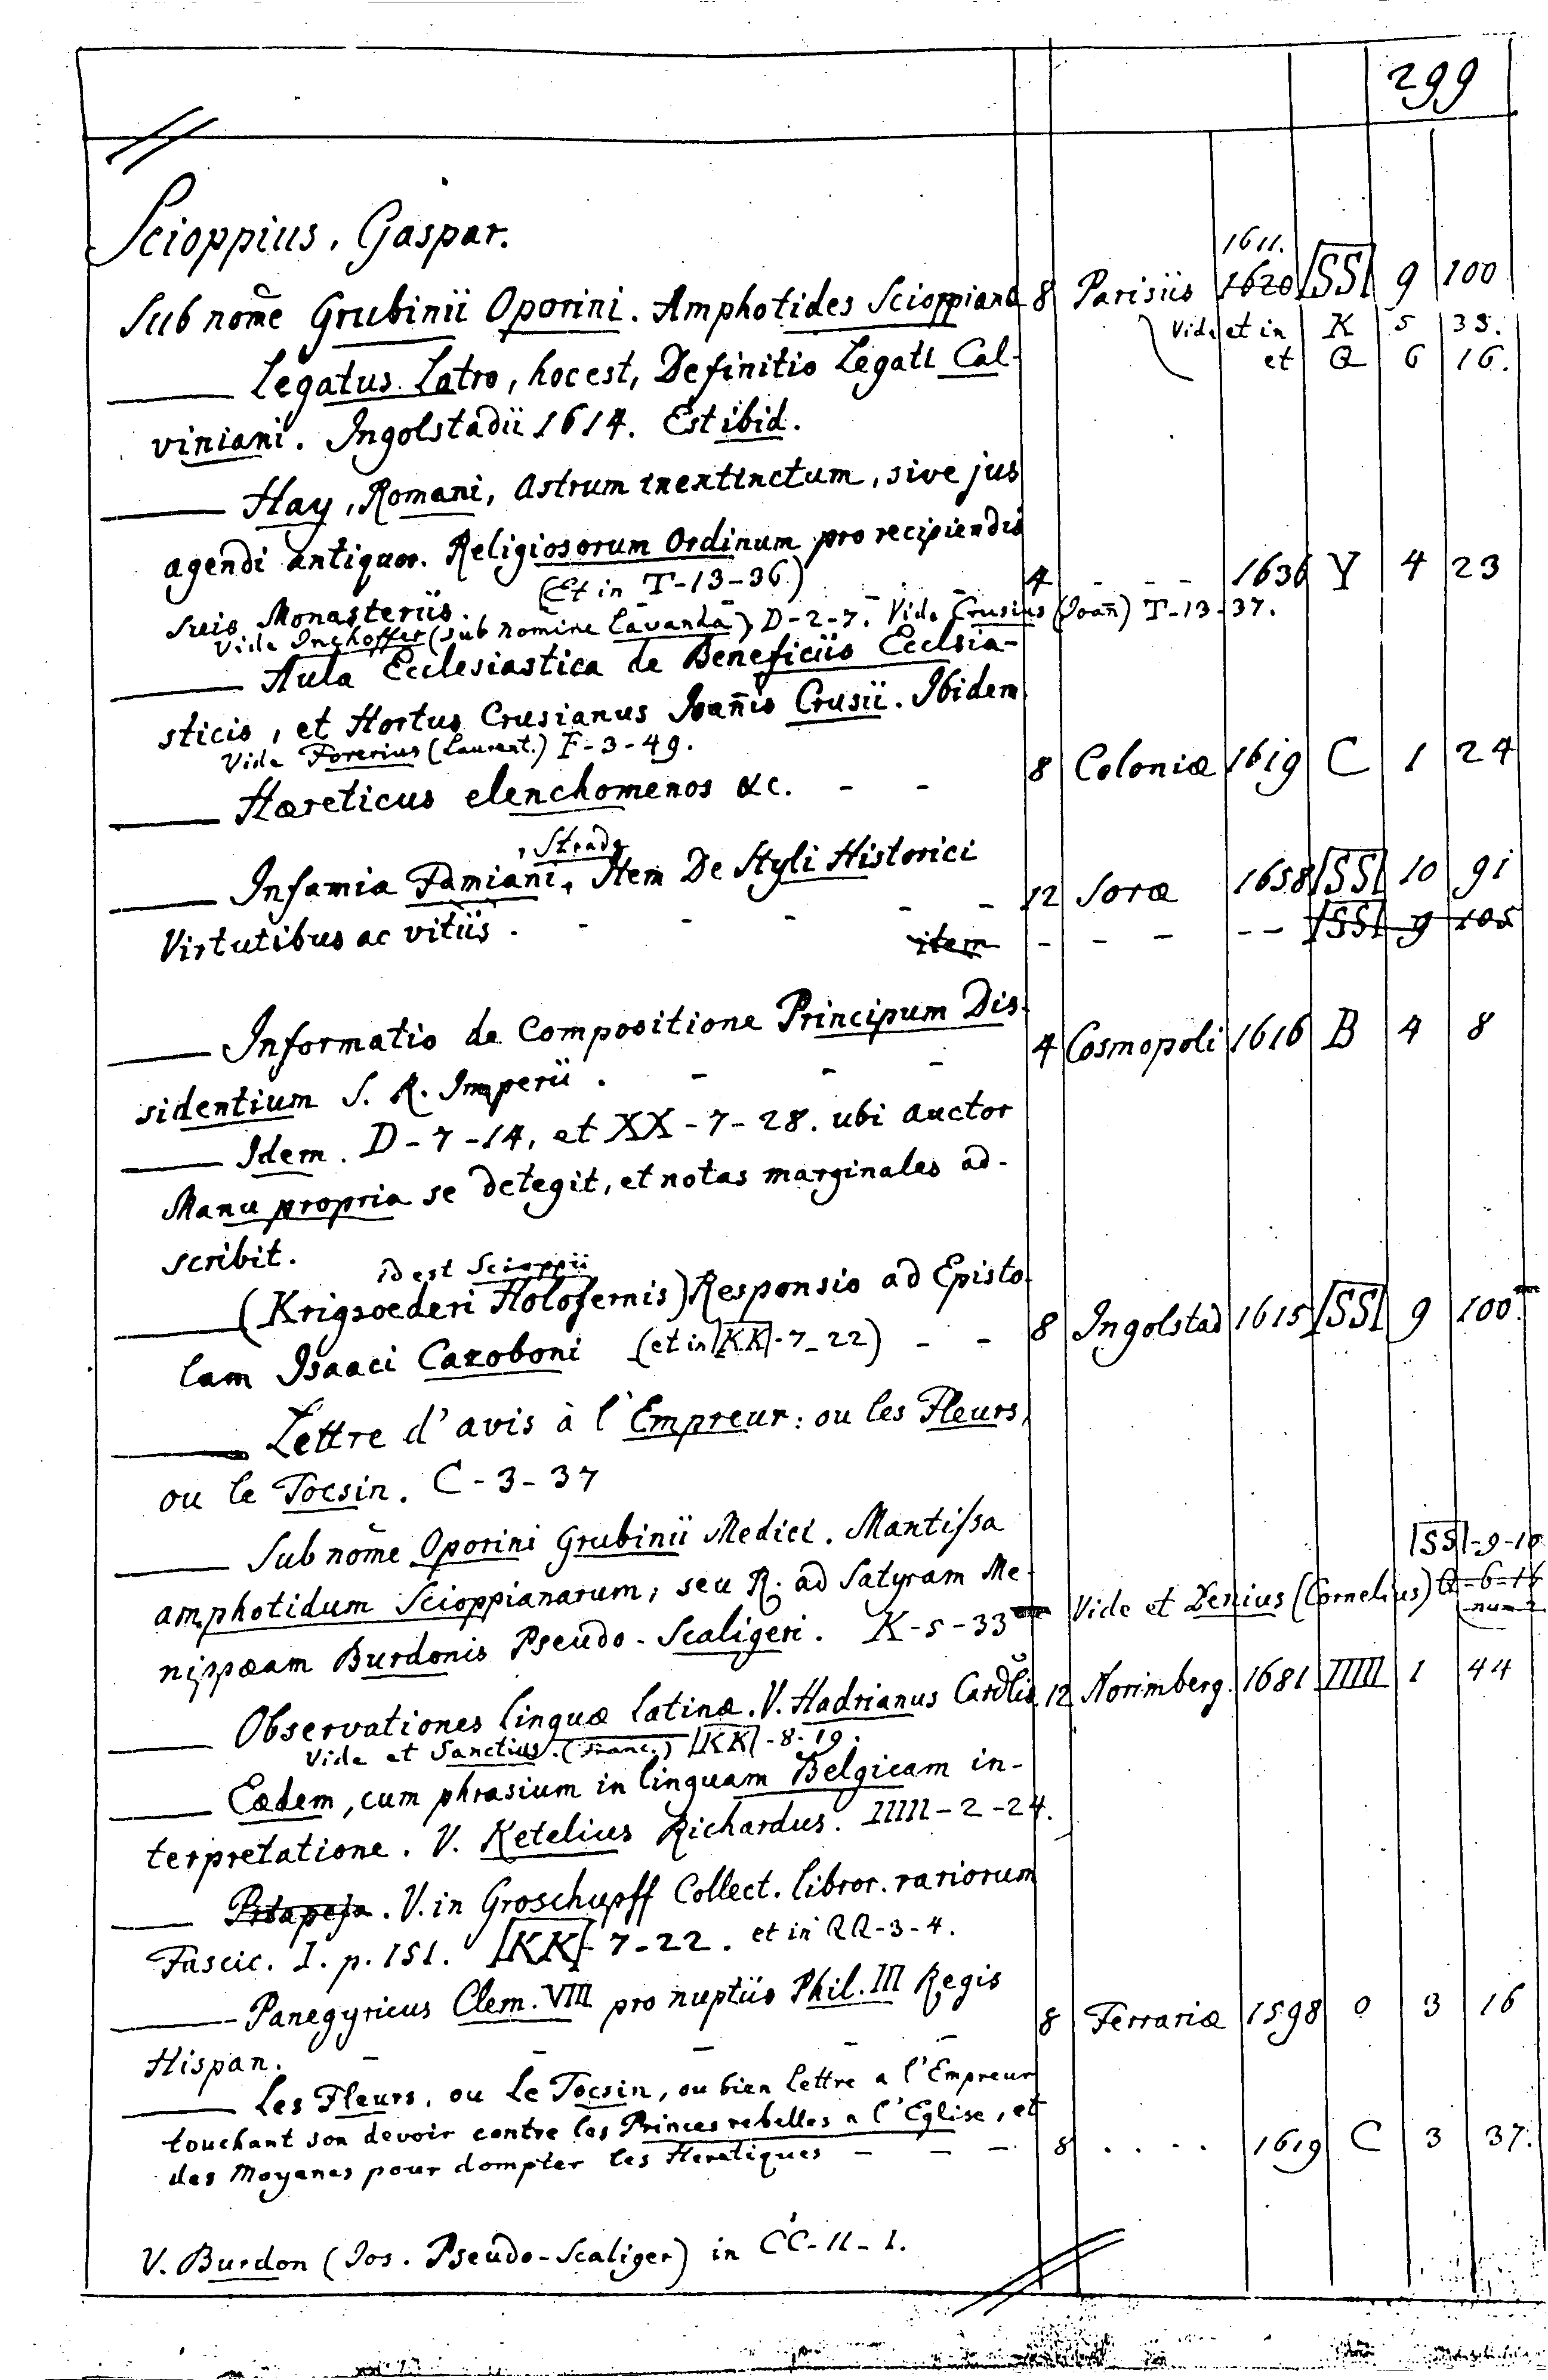 299
Scioppius, Gaspar.
1611.
Sub nom̃e Grubinii Oporini. Amphotides Scioppianæ 8 Parisiis 1620 |SS| 9 100
Vide et in K 5 33.
Legatus Latro, hoc est, Definitio Legati Cal- et Q 6 16.
viniani. Ingolstadii 1614. Est ibid.
Hay, Romani, Astrum inextinctum, sive jus
agendi antiquor. Religiosorum Ordinum pro recipiendis
suis Monasteriis. (Et in T-13-36.) 4 - - - 1636 Y 4 23
Vide Inchoffer (sub nomine Lavanda) D-2-7. Vide Crusius (Joañ) T-13-37.
Aula Ecclesiastica de Beneficiis Ecclsia-
sticis, et Hortus Crusianus Joañis Crusii. Ibidem
Vide Forerius (Laurent.) F-3-49.
Hæreticus elenchomenos &c. - - 8 Coloniæ 1619 C 1 24
, Stradæ
Infamia Famiani. Item De Styli Historici
Virtutibus ac vitiis. - - - - - 12 Soræ 1658 |SS| 10 91
item - - - - - |SS| 9 105
Informatio de Compositione Principum Dis-
sidentium S. R. Imperii. - - - 4 Cosmopoli 1616 B 4 8
Idem. D-7-14, et XX-7-28. ubi auctor
Manu propria se detegit, et notas marginales ad-
scribit.
id est Scioppii
(Krigsoederi Holofernis) Responsio ad Episto-
lam Isaaci Cazoboni (et in |KK|-7-22) - - 8 Ingolstad 1615 |SS| 9 100.
Lettre d'avis à l'Empreur: ou les Fleurs,
ou le Tocsin. C-3-37
Sub nom̃e Oporini Grubinii Medici. Mantissa
|SS|-9-10
amphotidum Scioppianarum, seu R. ad Satyram Me-
Vide et Denius (Cornelius) Q-6-16
num 2
nippæam Burdonis Pseudo-Scaligeri. K-5-33
Observationes linguæ latinæ. V. Hadrianus Cardlis 12 Norimberg. 1681 IIIII 1 44
Vide et Sanctius. (Franc.) |KK|-8-19.
Eædem, cum phrasium in linguam Belgicam in-
terpretatione. V. Ketelius Richardus. IIIII-2-24.
V. in Groschupff Collect. libror. rariorum
Fascic. I. p. 151. |KK|-7-22. et in QQ-3-4.
Panegyricus Clem. VIII pro nuptiis Phil. III Regis
Hispan. - - - - - 8 Ferrariæ 1598 O 3 16
Les Fleurs, ou Le Tocsin, ou bien Lettre a l'Empreur
touchant son devoir contre les Princes rebelles a l'Eglise, et
des Moyenes pour dompter les Heretiques - - - 8 . . . . 1619 C 3 37.
V. Burdon (Jos. Pseudo-Scaliger) in CC-11-1.